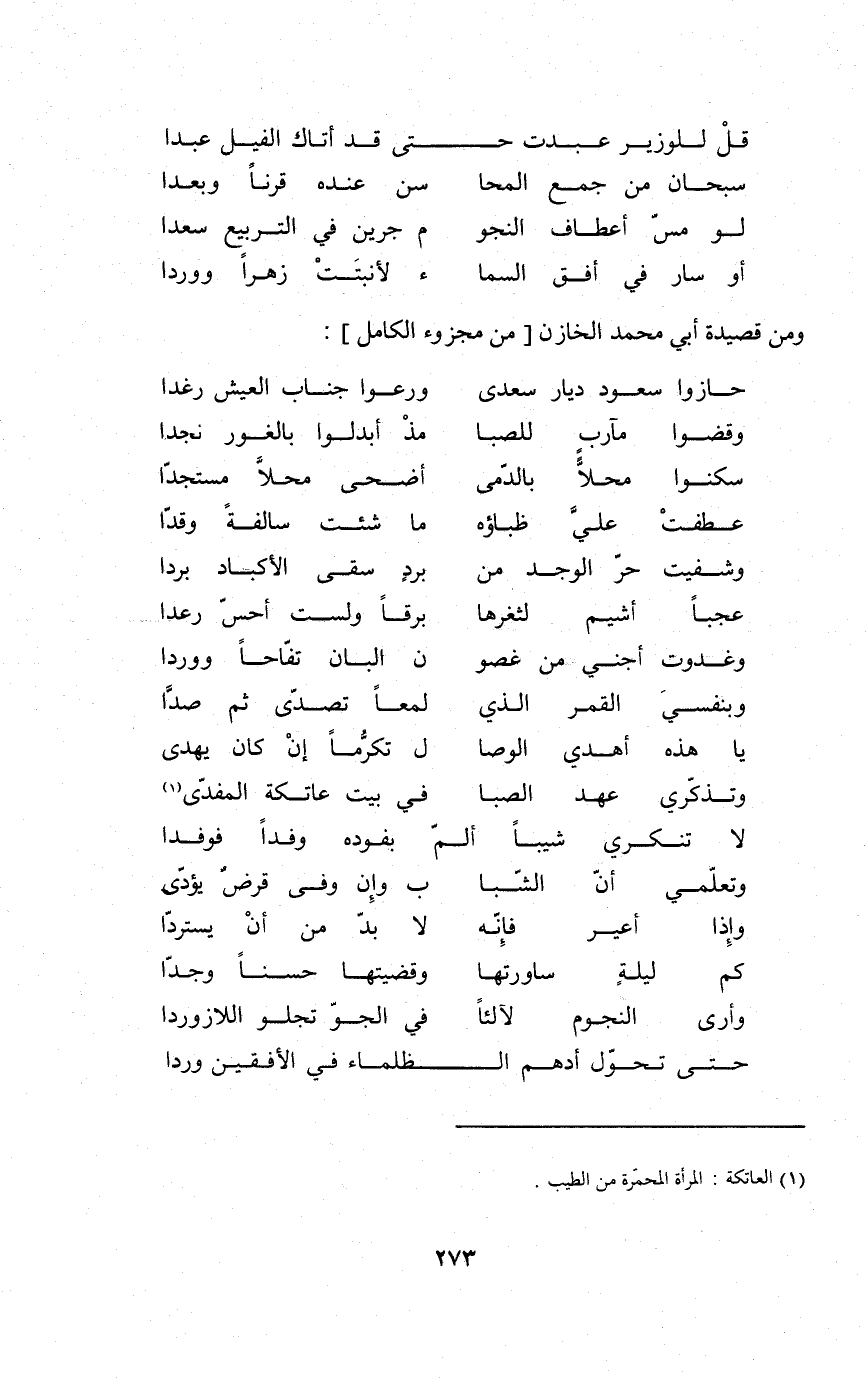 قلْ للوزير عبدت حتى قد أتاك الفيل عبدا
سبحان من جمع المحا سن عنده قرناً وبعدا
لو مسّ أعطاف النجو م جرين في التربيع سعدا
أو سار في أفق السما ء لأنبتَتْ زهراً ووردا
ومن قصيدة أبي محمد الخازن [ من مجزوء الكامل ] :
حازوا سعود ديار سعدى ورعوا جناب العيش رغدا
وقضوا مآرب للصبا مذْ أبدلوا بالغور نجدا
سكنوا محلاًّ بالدّمى أضحى محلاًّ مستجدّا
عطفتْ عليَّ ظباؤه ما شئت سالفةً وقدّا
وشفيت حرّ الوجد من بردٍ سقى الأكباد بردا
عجباً أشيم لثغرها برقاً ولست أحسّ رعدا
وغدوت أجني من غصو ن البان تفّاحاً ووردا
وبنفسيَ القمر الذي لمعاً تصدّى ثم صدَّا
يا هذه أهدي الوصا ل تكرُّماً إنْ كان يهدى
وتذكّري عهد الصبا في بيت عاتكة المفدّى(١)
لا تنكري شيباً ألمّ بفوده وفداً فوفدا
وتعلّمي أنّ الشّبا ب وإن وفى قرضٌ يؤدّى
وإذا أعير فإنّه لا بدّ من أنْ يستردّا
كم ليلةٍ ساورتها وقضيتها حسناً وجدّا
وأرى النجوم لآلئاً في الجوّ تجلو اللازوردا
حتى تحوّل أدهم الظلماء في الأفقين وردا
(١) العاتكة : المرأة المحمّرة من الطيب .
٢٧٣